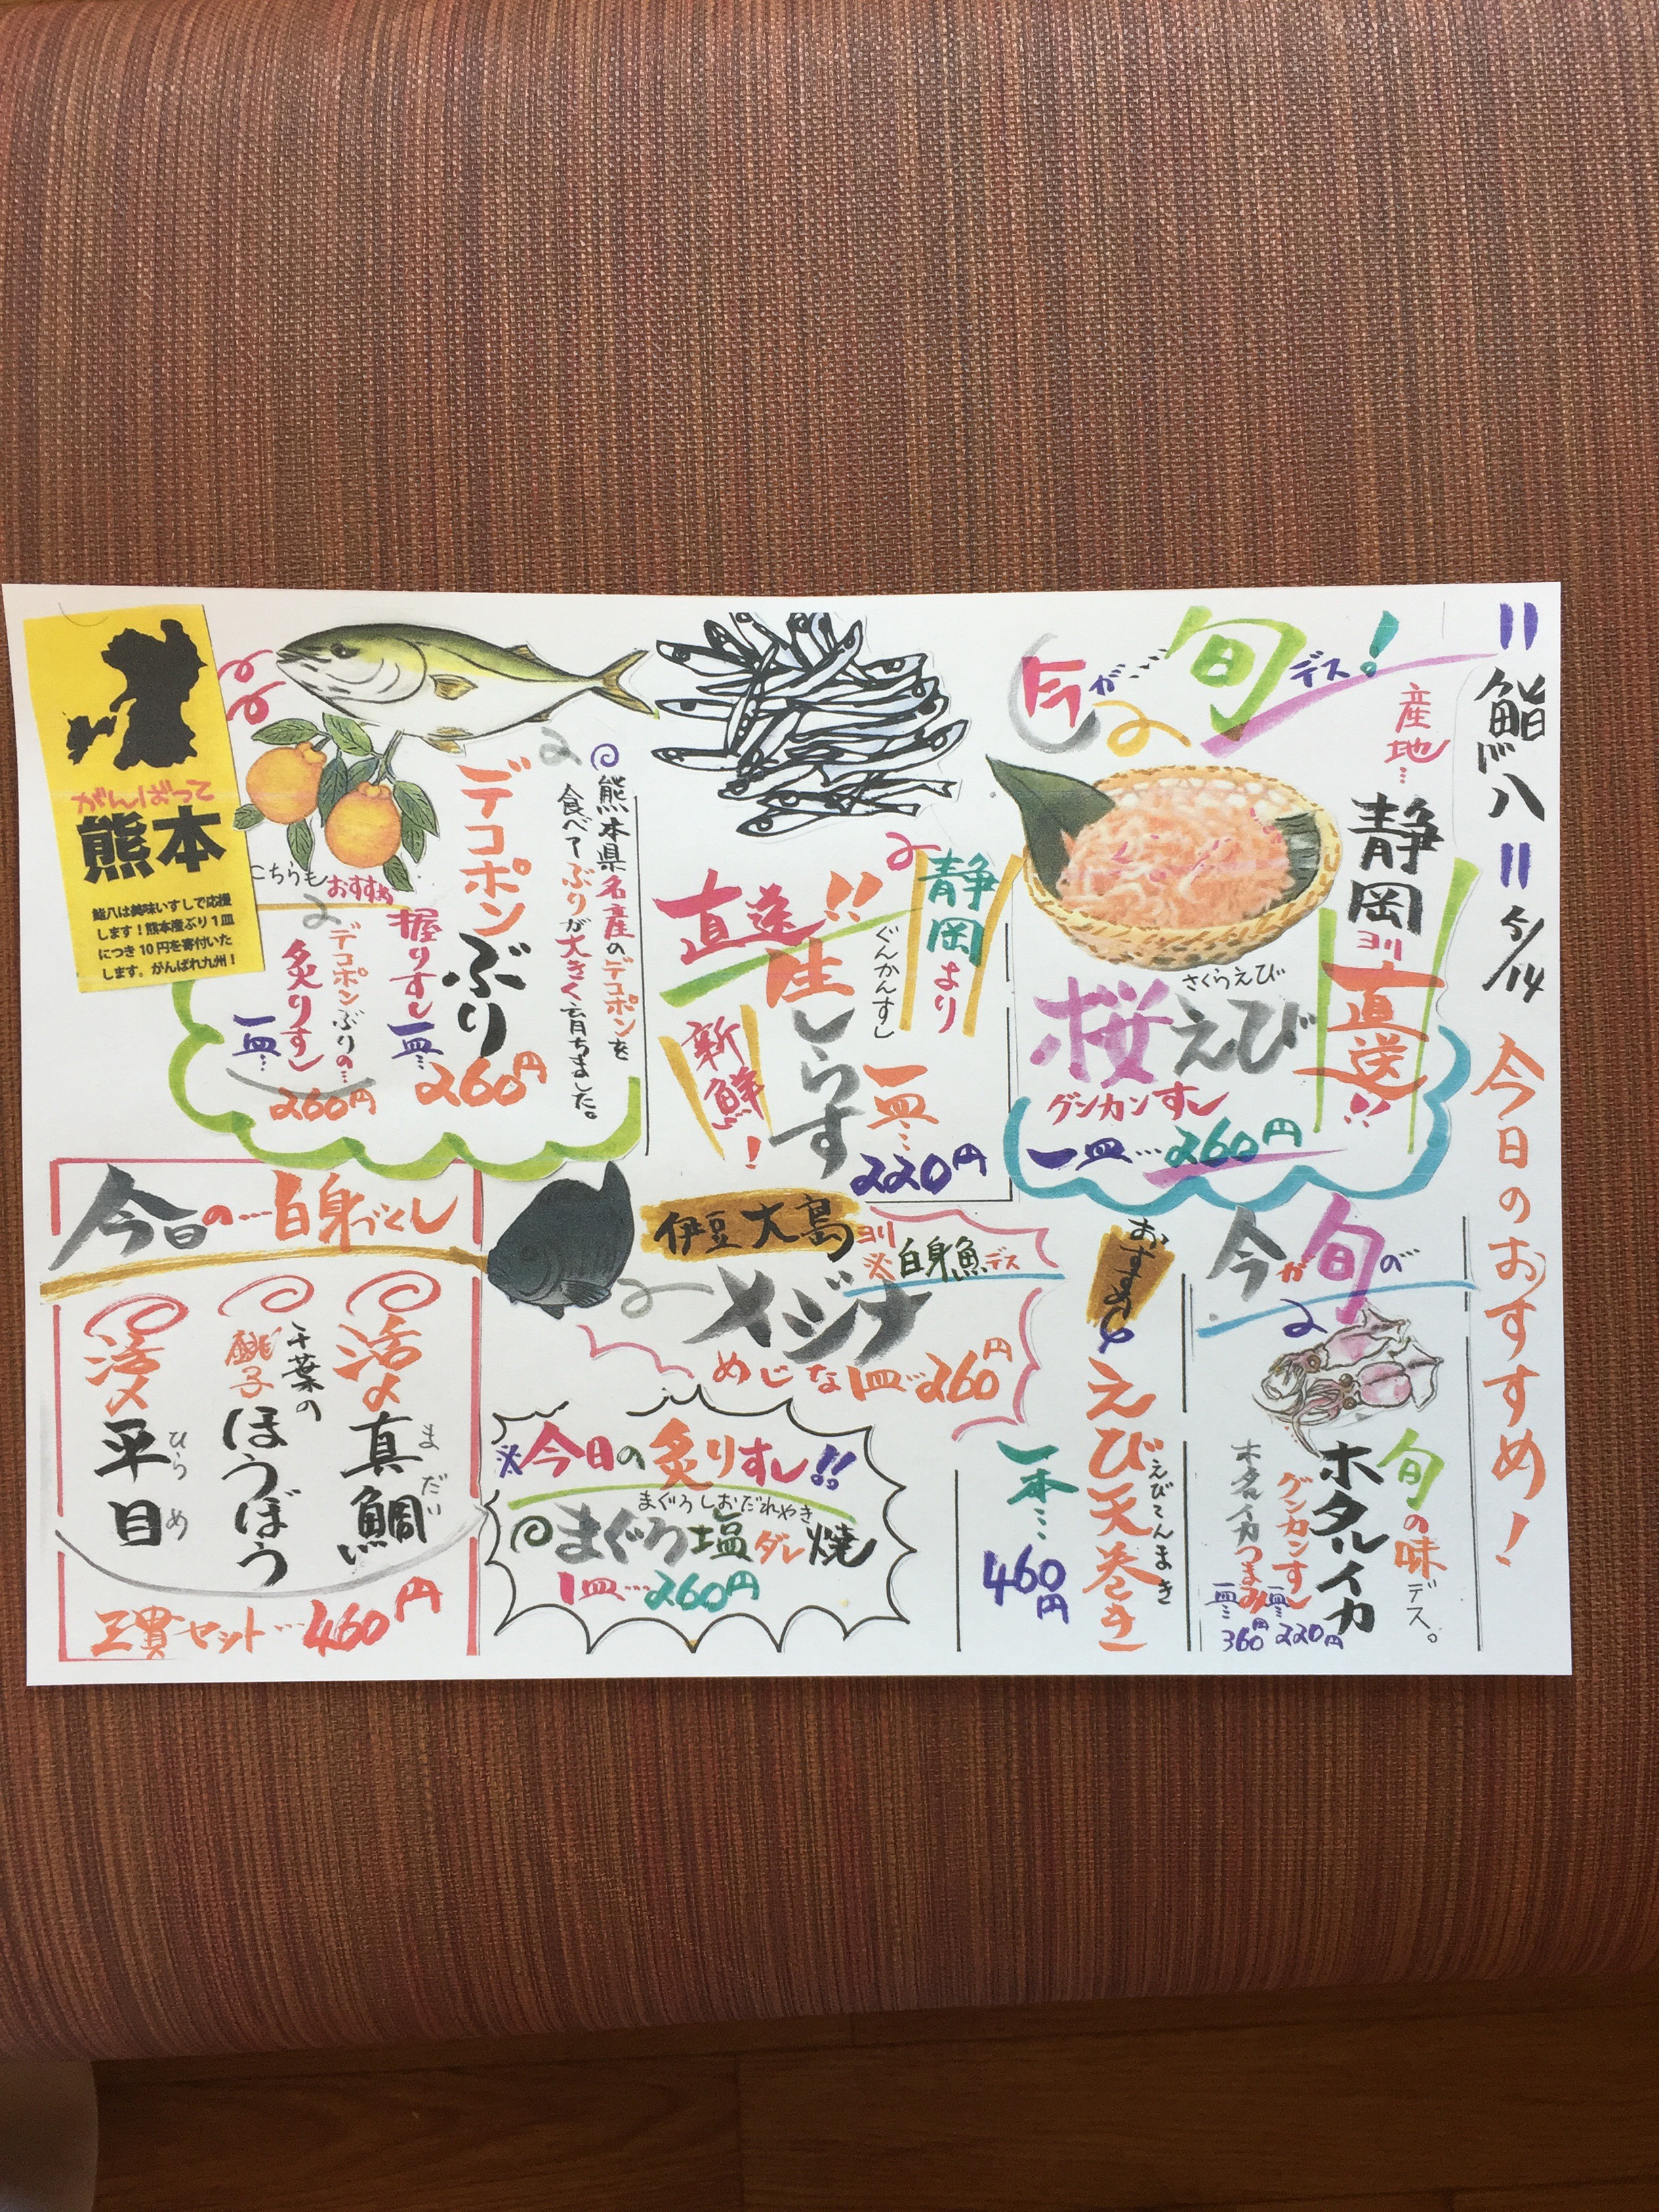 鮨八
5/14
今日のおすすめ!
今が…旬デス!
産地…
静岡
ヨリ
直送!!
さくらえび
桜えび
グンカンすし
一皿…260円
静岡より
直送!!
ぐんかんすし
生しらす
新鮮!
一皿…
220円
熊本県名産のデコポンを
食べてぶりが大きく育ちました。
デコポンぶり
握りすし
一皿…
260円
こちらもおすすめ
デコポンぶりの…
炙りすし
一皿…
260円
がんばって
熊本
鮨八は美味いすしで応援
します!熊本産ぶり1皿
につき10円を寄付いた
します。がんばれ九州!
今が旬の
旬の味デス。
ホタルイカ
グンカンすし
一皿…
220円
ホタルイカつまみ
一皿…
360円
おすすめ
えびてんまき
えび天巻き
一本…
460円
伊豆大島ヨリ
※白身魚デス
メジナ
めじな1皿…260円
※今日の炙りすし!!
まぐろしおだれやき
まぐろ塩ダレ焼
1皿…260円
今日の…白身づくし
活〆
真鯛
まだい
千葉の
銚子
ほうぼう
活〆
平目
ひらめ
三貫セット…460円